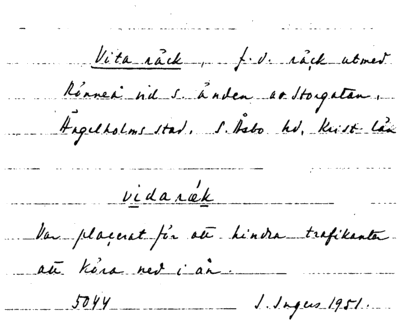 Vita räck, f.d. räck utmed
Rönneå vid s. änden av Storgatan,
Ängelholms stad, S. Åsbo hd, Krist. län
vidaræk
Var placerat för att hindra trafikanter
att köra ned i ån.
5044 I. Ingers 1951.